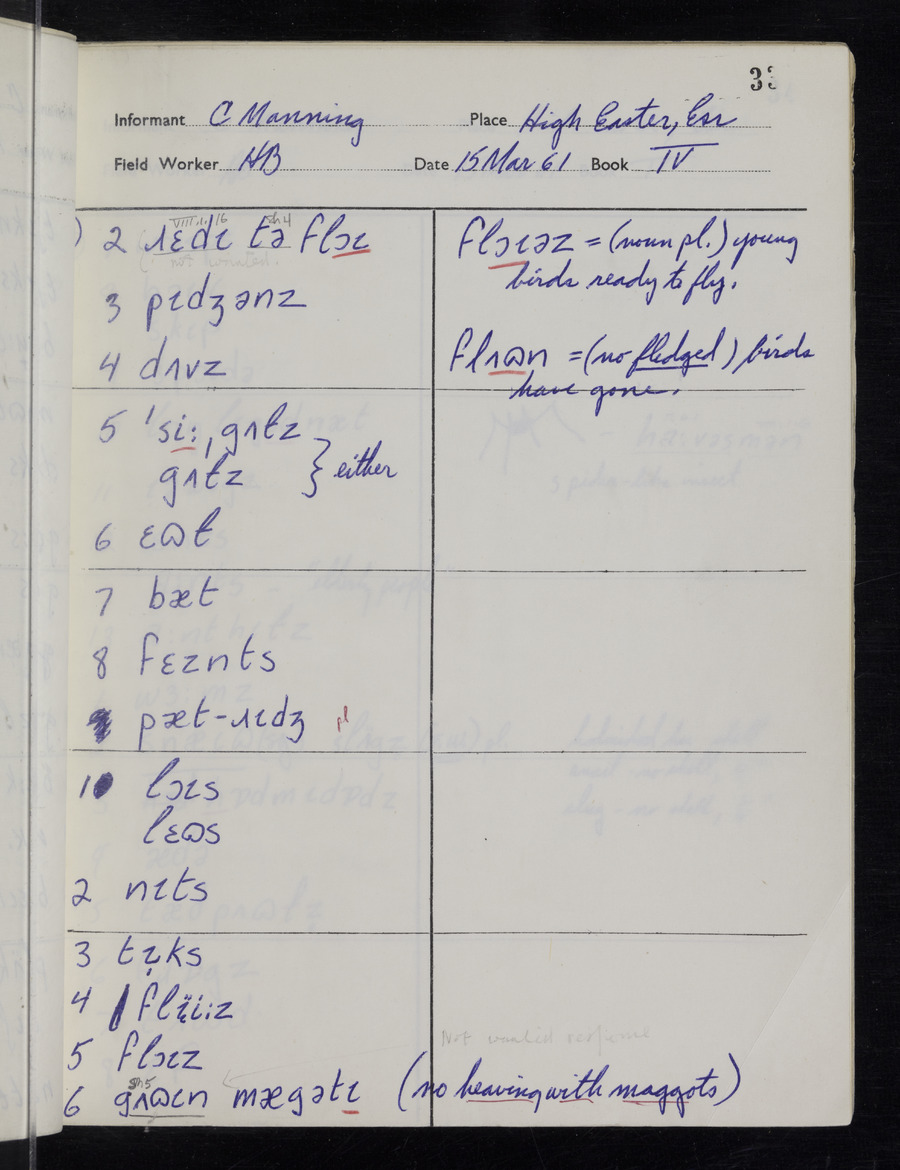 33
Informant C Manning Place High Easter, Ess
Field Worker HB Date 15 Mar 61 Book IV
VIII.1.16 sh4
) 2 ɹɛdɪ tə flɔɪ
not wanted.
flɔɪəz = (noun pl.) young
birds ready to fly.
3 pɪdʒənz
4 dʌvz
flʌɷn = (no fledged) birds
have gone.
5 ˈsi:ˌgʌtz
gʌtz } either
6 ɛɷt
7 bæt
8 fɛznts
9 pæt-ɹɪdʒ pl
10 lɔɪs
lɛɷs
2 nɪts
3 tɪ̞ks
4 flï̞i:z
5 flɔɪz
Not wanted response
sh5
6 gɹʌɷɪn mægətɪ (no heaving with maggots)